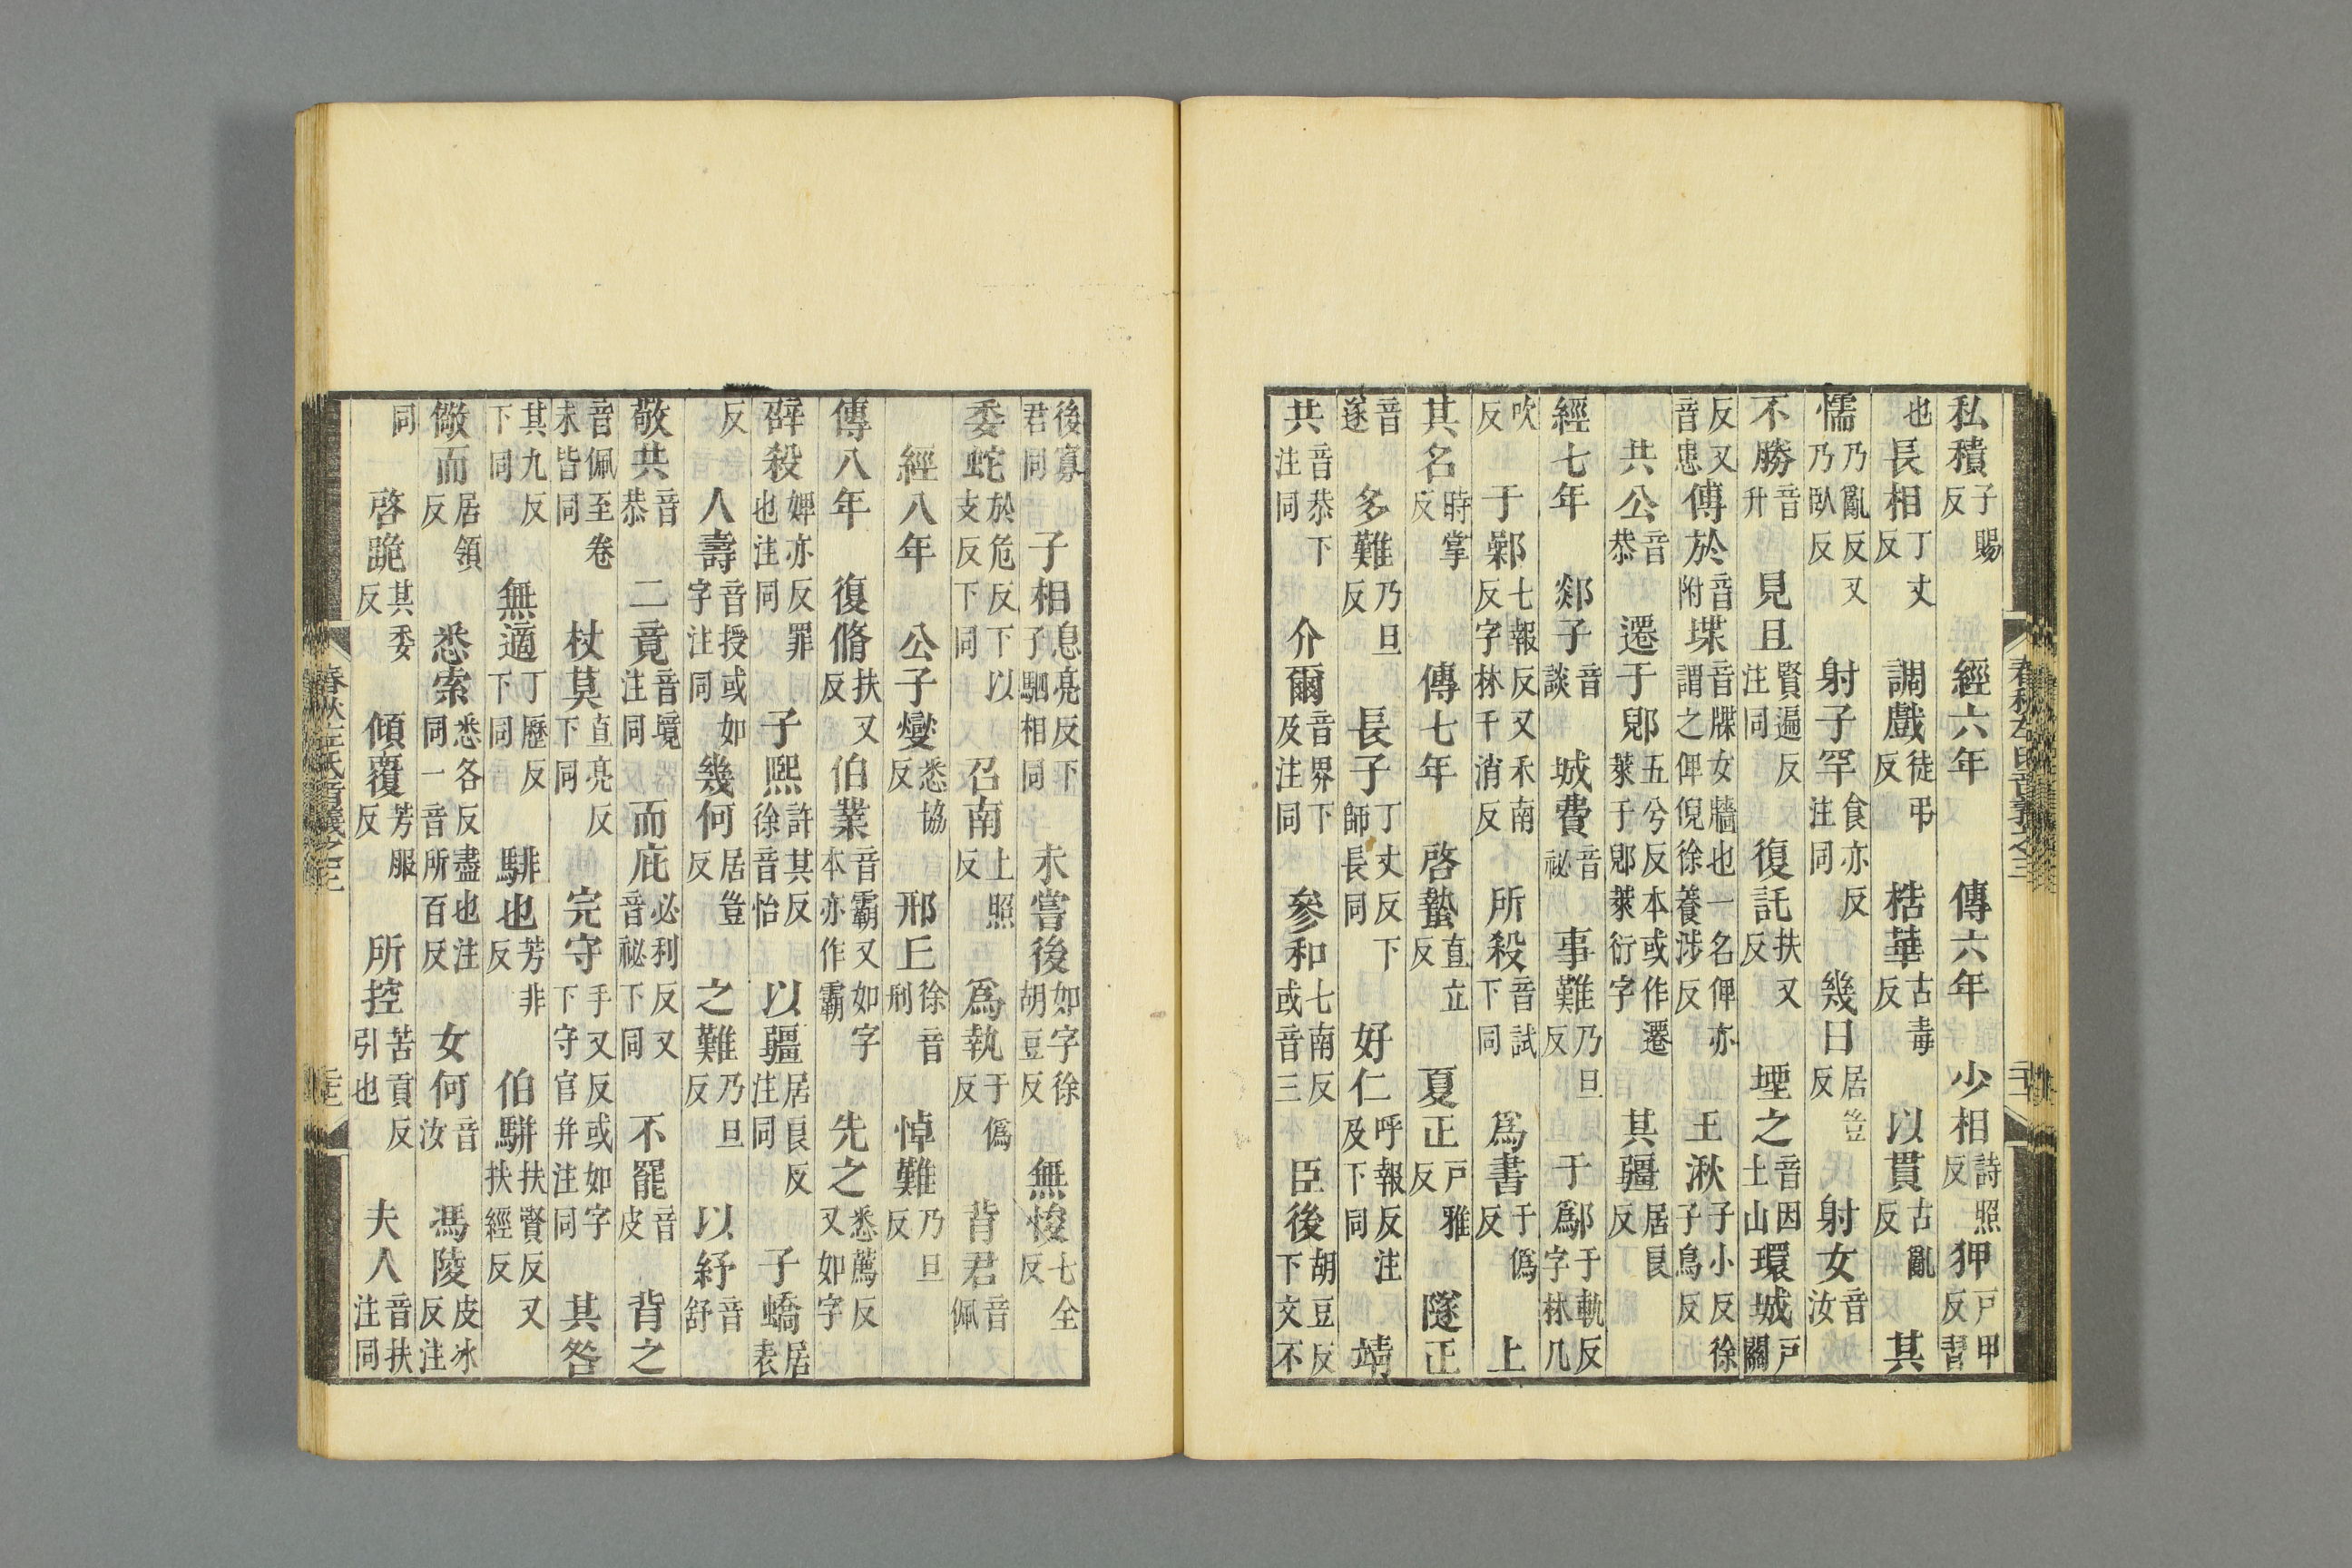 私積子賜反 經六年 傳六年 少相詩照反狎戸甲反習
也長相丁丈反 調戲徒弔反 梏華古毒反 以貫古亂反 其
懦乃亂反又乃臥反 射子罕食亦反注同 幾日居豈反 射女音汝
不勝音升 見且賢遍反注同 復託扶又反 堙之音因土山環城戸關
反又音患傅於音附堞音牒女牆也一名俾亦謂之俾倪徐養涉反 王湫子小反徐子鳥反
共公音恭 遷于郳五兮反本或作遷萊于郳萊衍字 其疆居良反
經七年 郯子音談 城費音祕 事難乃旦反 于鄬于軌反字林几
吹反 于鄵七報反字林千消反又禾南反 所殺音試下同 爲書于僞反 上
其名時掌反 傳七年 啓蟄直立反 夏正戸雅反 隧正
音遂 多難乃旦反 長子丁丈反下師長同 好仁呼報反注及下同 靖
共音恭下注同 介爾音界下及注同 參和七南反或音三 臣後胡豆反下文不
後寡君同 子相息亮反下子駟相同 未嘗後如字徐胡豆反 無悛七全反
委蛇於危反下以支反下同 召南上照反 爲執于僞反 背君音佩
經八年 公子燮悉協反 邢丘徐音刑 悼難乃旦反
傳八年 復脩扶又反 伯業音霸又如字本亦作霸 先之悉薦反又如字
辟殺婢亦反罪也注同 子熙許其反徐音怡 以疆居良反注同 子蟜居表
反 人壽音授或如字注同 幾何居豈反 之難乃旦反 以紓音舒
敬共音恭 二竟音境注同 而庇必利反又音祕下同 不罷音皮 背之
音佩至卷末皆同 杖莫直亮反下同 完守手又反或如字下守官并注同 其咎
其九反下同 無適丁歷反下同 騑也芳非反 伯駢扶賢反又扶經反
儆而居領反 悉索悉各反盡也注同一音所百反 女何音汝 馮陵皮冰反注
同 啓跪其委反 傾覆芳服反 所控苦貢反引也 夫人音扶注同
春秋左氏音義之三